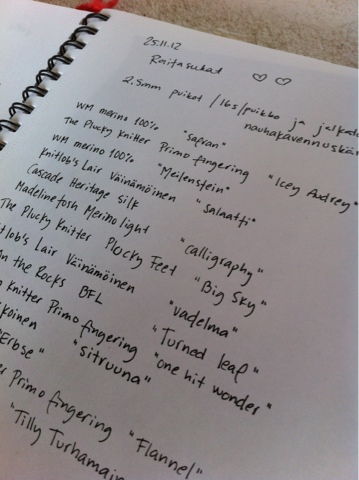 25.11.12
Raitasukat
2.5mm puikot / 16s/puikko ja
WM merino 100% "Safran"
The Plucky Knitter Primo fingering "Icey Audrey"
WM merino 100% "Meilenstein"
Knitlob's Lair Väinämöinen "Salaatti"
Cascade Heritage Silk
Madelinetosh Merino light "Calligraphy"
The Plucky Knitter Plucky Feet "Big Sky"
Knitlob's Lair Väinämöinen "Vadelma"
on the Rocks BFL "Turned leaf"
Knitter Primo fingering "one hit wonder"
"sitruuna"
"Erbse"
Primo fingering "Flannel"
"Tilly